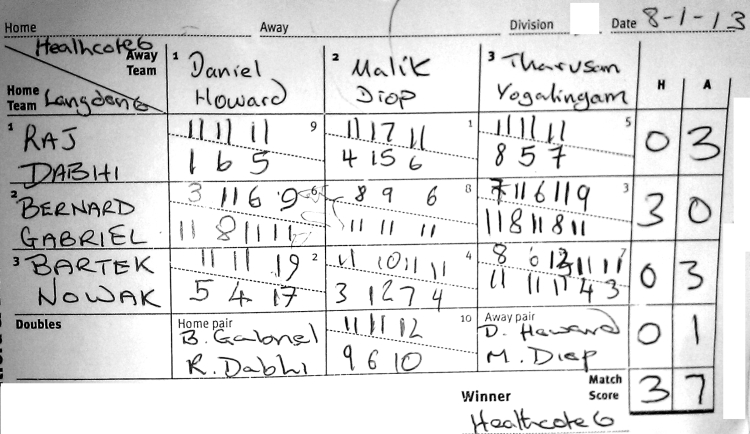 Home Away Division Date 8-1-13
Heathcote 6 Away Team
Home Team Langdon 6
1 Daniel Howard
2 Malik Diop
3 Tharusam Yogalingam
H A
1 RAJ DABHI
11 11 11 9
1 6 5
11 17 11 1
4 15 6
11 11 11 5
8 5 7
0 3
2 BERNARD GABRIEL
3 11 6 9 6
11 8 11 11
8 9 6 8
11 11 11
7 11 6 11 9 3
11 8 11 8 11
3 0
3 BARTEK NOWAK
11 11 19 2
5 4 17
11 10 11 11 4
3 12 7 4
8 6 13 11 11 7
11 11 11 4 3
0 3
Doubles
Home pair
B. Gabriel
R. Dabhi
11 11 12 10
9 6 10
Away pair
D. Howard
M. Diop
0 1
Winner
Match Score 3 7
Heathcote 6